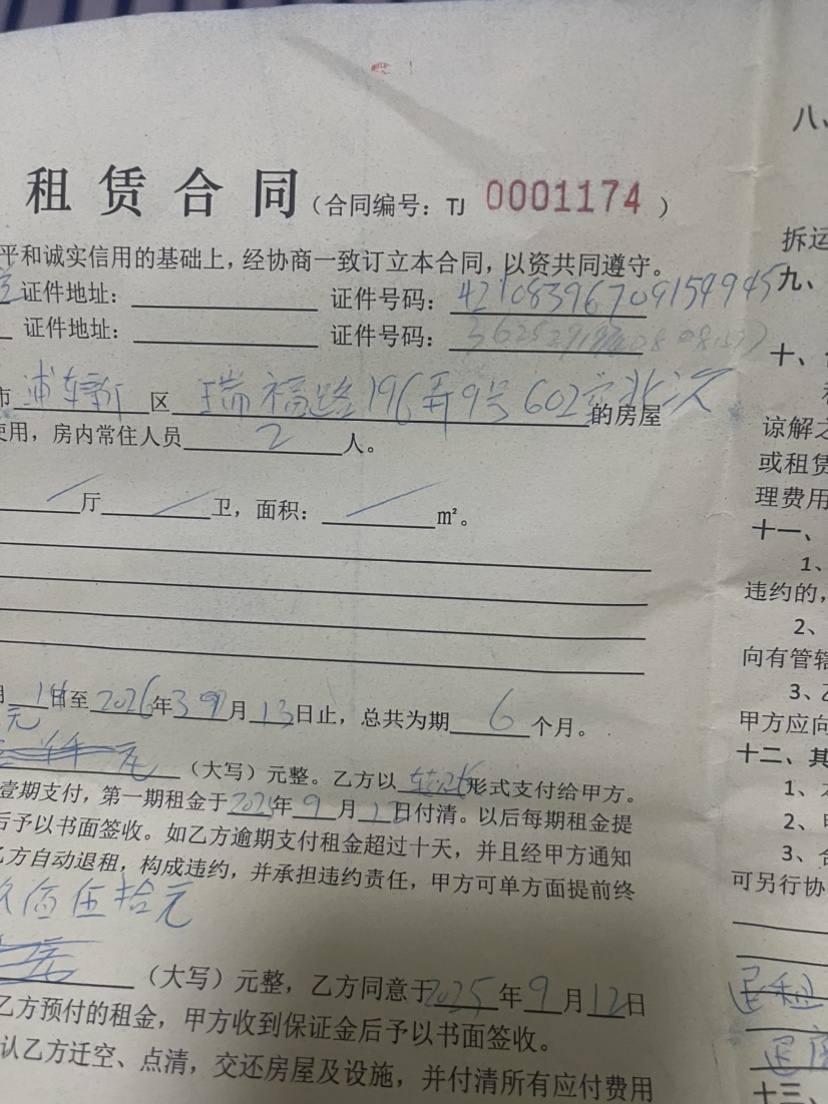 租赁合同（合同编号：TJ 0001174）
平和诚实信用的基础上，经协商一致订立本合同，以资共同遵守。
证件地址： 证件号码：42108396709154945
证件地址： 证件号码：
市浦东新区瑞福路196弄9号602室北次的房屋
使用，房内常住人员2人。
厅 卫，面积： m²。
日至2026年3月13日止，总共为期6个月。
元
元（大写）元整。乙方以转账形式支付给甲方。
壹期支付，第一期租金于2025年9月12日付清。以后每期租金提
后予以书面签收。如乙方逾期支付租金超过十天，并且经甲方通知
乙方自动退租，构成违约，并承担违约责任，甲方可单方面提前终
佰伍拾元
（大写）元整，乙方同意于2025年9月12日
乙方预付的租金，甲方收到保证金后予以书面签收。
认乙方迁空、点清，交还房屋及设施，并付清所有应付费用
八、
拆运
九、
十、
谅解之
或租赁
理费用
十一、
1、
违约的，
2、
向有管辖
3、乙
甲方应向
十二、其
1、
2、甲
3、合
可另行协
退租
十三、